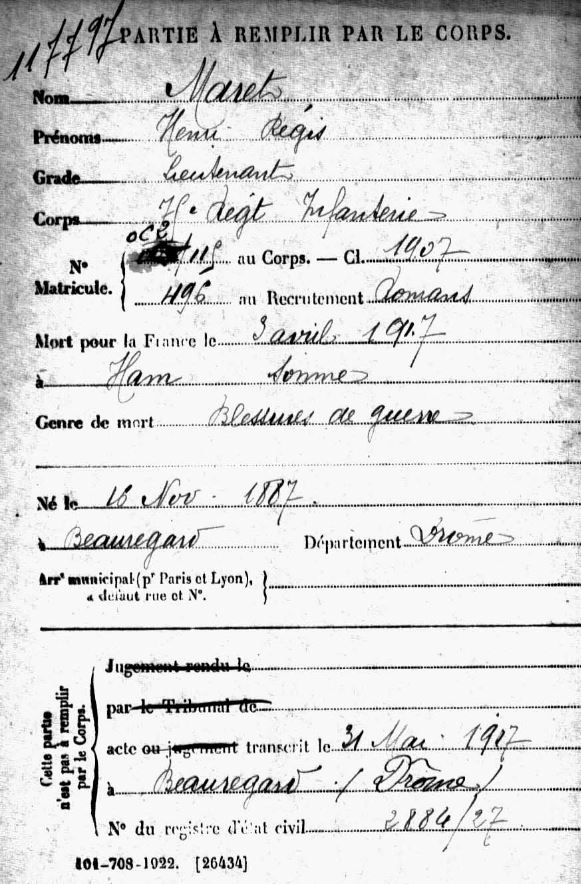 117797
PARTIE À REMPLIR PAR LE CORPS.
Nom Maret
Prénoms Henri Régis
Grade Lieutenant
Corps 75e Régt Infanterie
N° Matricule. OC2 115 au Corps. — Cl. 1907
496 au Recrutement Romans
Mort pour la France le 3 avril 1917
à Ham Somme
Genre de mort Blessures de guerre
Né le 16 Nov. 1887.
à Beauregard Département Drôme
Arrt municipal (pr Paris et Lyon),
à défaut rue et N°.
Cette partie
n'est pas à remplir
par le Corps.
Jugement rendu le
par le Tribunal de
acte ou jugement transcrit le 31 Mai 1917
à Beauregard (Drôme)
N° du registre d'état civil 2884/27
101-708-1922. [26434]